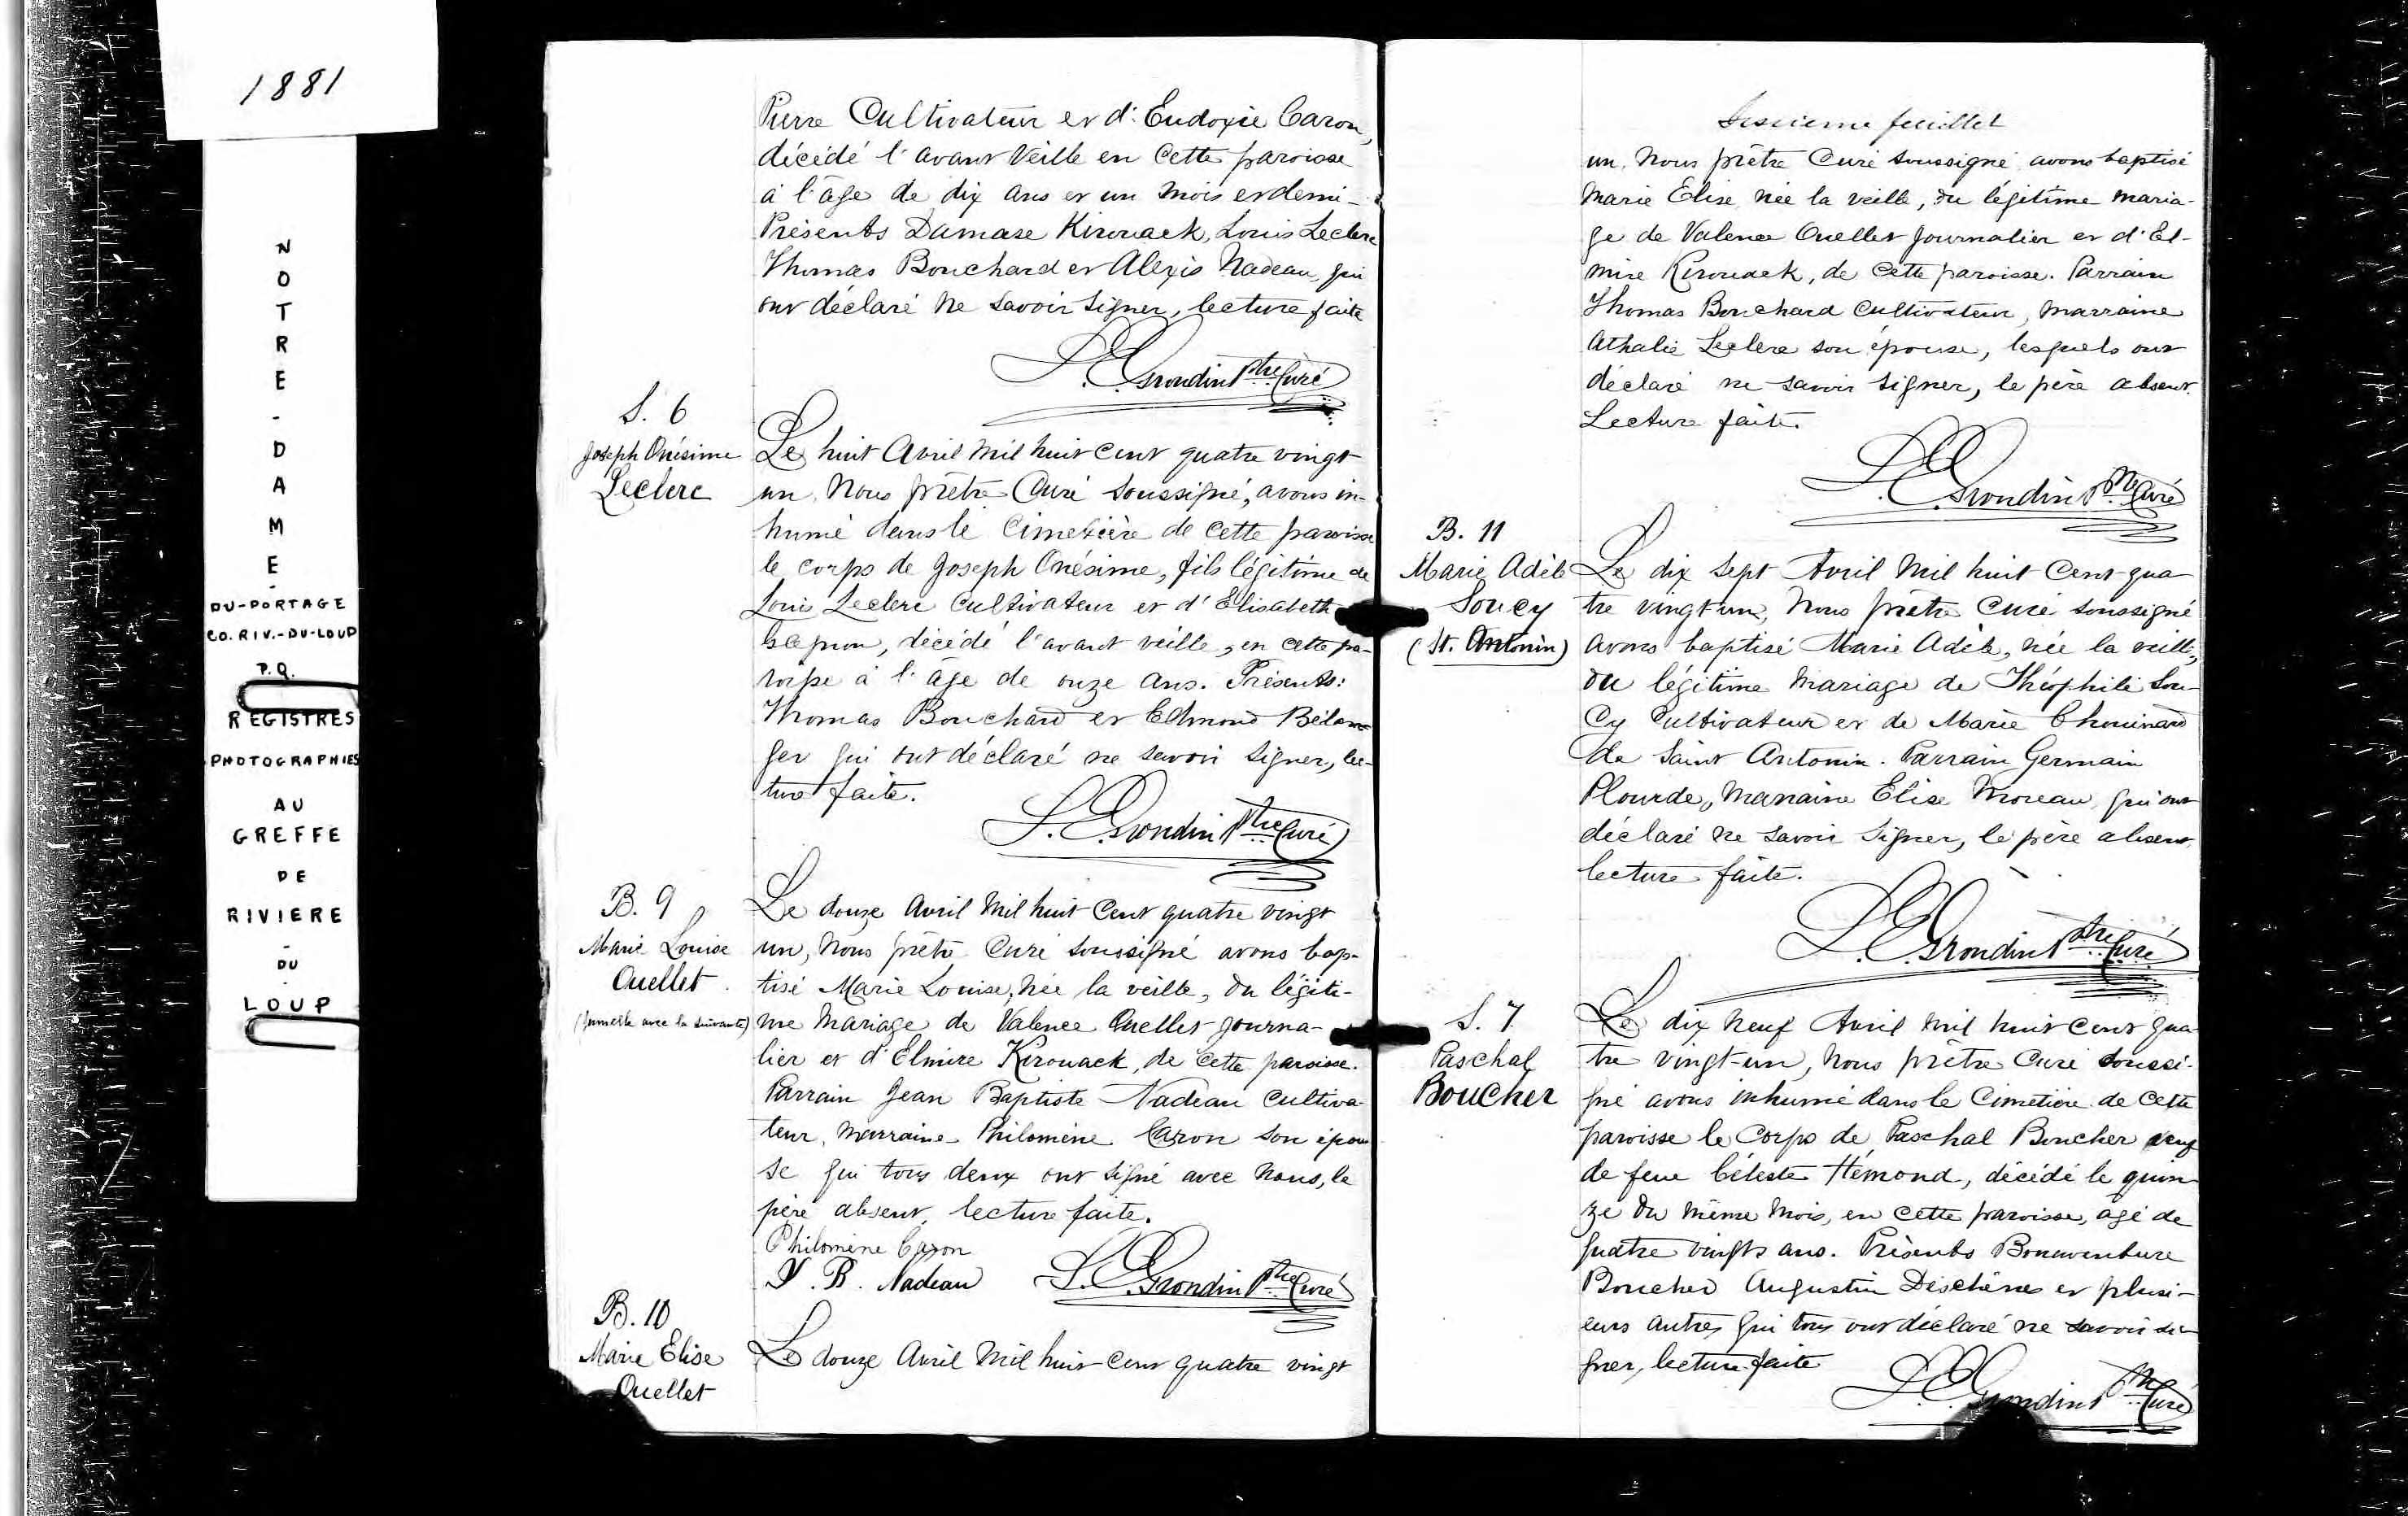 1881
NOTRE-DAME-
DU-PORTAGE
CO. RIV.-DU-LOUP
P.Q.
REGISTRES
PHOTOGRAPHIES
AU
GREFFE
DE
RIVIERE
-
DU
-
LOUP
Pierre Cultivateur et d'Eudoxie Caron,
décédé l'avant veille en cette paroisse
à l'âge de dix ans et un mois et demi-
Présents Damase Kirouack, Louis Leclerc
Thomas Bouchard et Alexis Nadeau, qui
ont déclaré ne savoir signer, lecture faite
L. E. Grondin Ptre Curé
S. 6
Joseph Onésime
Leclerc
Le huit Avril Mil huit Cent quatre vingt
un, Nous prêtre Curé soussigné, avons in-
humé dans le Cimetière de cette paroisse
le corps de Joseph Onésime, fils légitime de
Louis Leclerc Cultivateur et d'Elisabeth
décédé l'avant veille, en cette pa-
roisse à l'âge de onze ans. Présents:
Thomas Bouchard et Edmond Bélan-
ger qui ont déclaré ne savoir signer, lec-
ture faite.
L. E. Grondin Ptre Curé
B. 9
Marie Louise
Ouellet
(Jumelle avec la suivante)
Le douze Avril Mil huit Cent quatre vingt
un, Nous prêtre Curé soussigné avons bap-
tisé Marie Louise, née la veille, du légiti-
me Mariage de Valence Ouellet Journa-
lier et d'Elmire Kirouack, de cette paroisse.
Parrain Jean Baptiste Nadeau Cultiva-
teur, Marraine Philomène Caron son épou
se qui tous deux ont signé avec Nous, le
père absent, lecture faite.
Philomène Caron
J. B. Nadeau L. E. Grondin Ptre Curé
B. 10
Marie Elise
Ouellet
Le douze Avril Mil huit Cent quatre vingt
Sixième feuillet
un, Nous prêtre Curé soussigné avons baptisé
Marie Elise née la veille, du légitime maria-
ge de Valence Ouellet Journalier et d'El-
mire Kirouack, de cette paroisse. Parrain
Thomas Bouchard Cultivateur, Marraine
Athalie Leclerc son épouse, lesquels ont
déclaré ne savoir signer, le père absent.
Lecture faite.
L. E. Grondin Ptre Curé
B. 11
Marie Adèle
Soucy
(St. Antonin)
Le dix Sept Avril Mil huit Cent qua
tre vingt un, Nous prêtre Curé soussigné
avons baptisé Marie Adèle, née la veille,
du légitime Mariage de Théophile Sou-
cy Cultivateur et de Marie Chouinard
de Saint Antonin. Parrain Germain
Plourde, Marraine Elise Moreau, qui ont
déclaré ne savoir signer, le père absent,
lecture faite.
L. E. Grondin Ptre Curé
S. 7
Paschal
Boucher
Le dix Neuf Avril Mil huit Cent qua
tre vingt-un, Nous prêtre Curé soussi-
gné avons inhumé dans le Cimetière de cette
paroisse le Corps de Paschal Boucher veuf
de feue Céleste Hémond, décédé le quin
ze du même Mois, en cette paroisse, âgé de
quatre vingts ans. Présents Bonaventure
Boucher Augustin Deschênes et plusi-
eurs autres qui tous ont déclaré ne savoir si-
gner, lecture faite
L. E. Grondin Ptre Curé